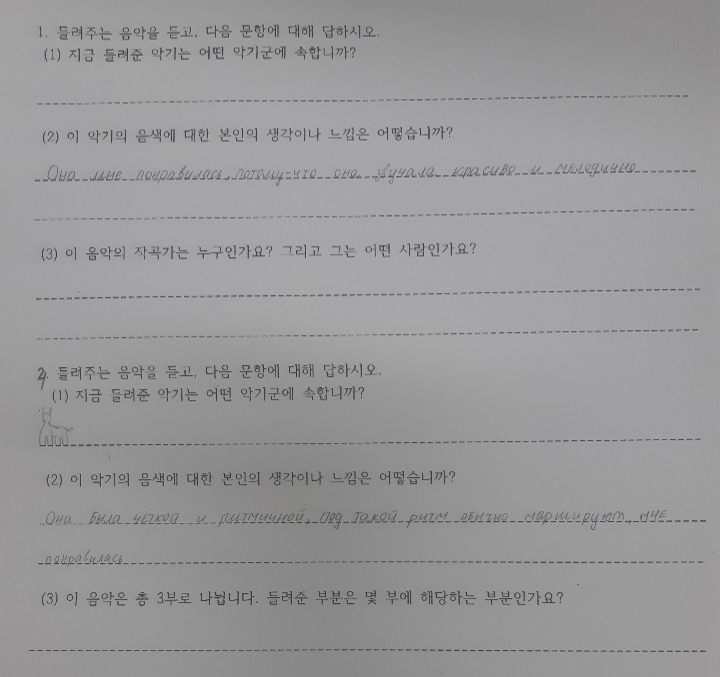 1. 들려주는 음악을 듣고, 다음 문항에 대해 답하시오.
(1) 지금 들려준 악기는 어떤 악기군에 속합니까?
(2) 이 악기의 음색에 대한 본인의 생각이나 느낌은 어떻습니까?
Она мне понравилась, потому-что она звучала красиво и мелодично
(3) 이 음악의 작곡가는 누구인가요? 그리고 그는 어떤 사람인가요?
2. 들려주는 음악을 듣고, 다음 문항에 대해 답하시오.
(1) 지금 들려준 악기는 어떤 악기군에 속합니까?
(2) 이 악기의 음색에 대한 본인의 생각이나 느낌은 어떻습니까?
Она была чёткой и ритмичной, под такой ритм обычно маршируют, мне
понравилась
(3) 이 음악은 총 3부로 나뉩니다. 들려준 부분은 몇 부에 해당하는 부분인가요?